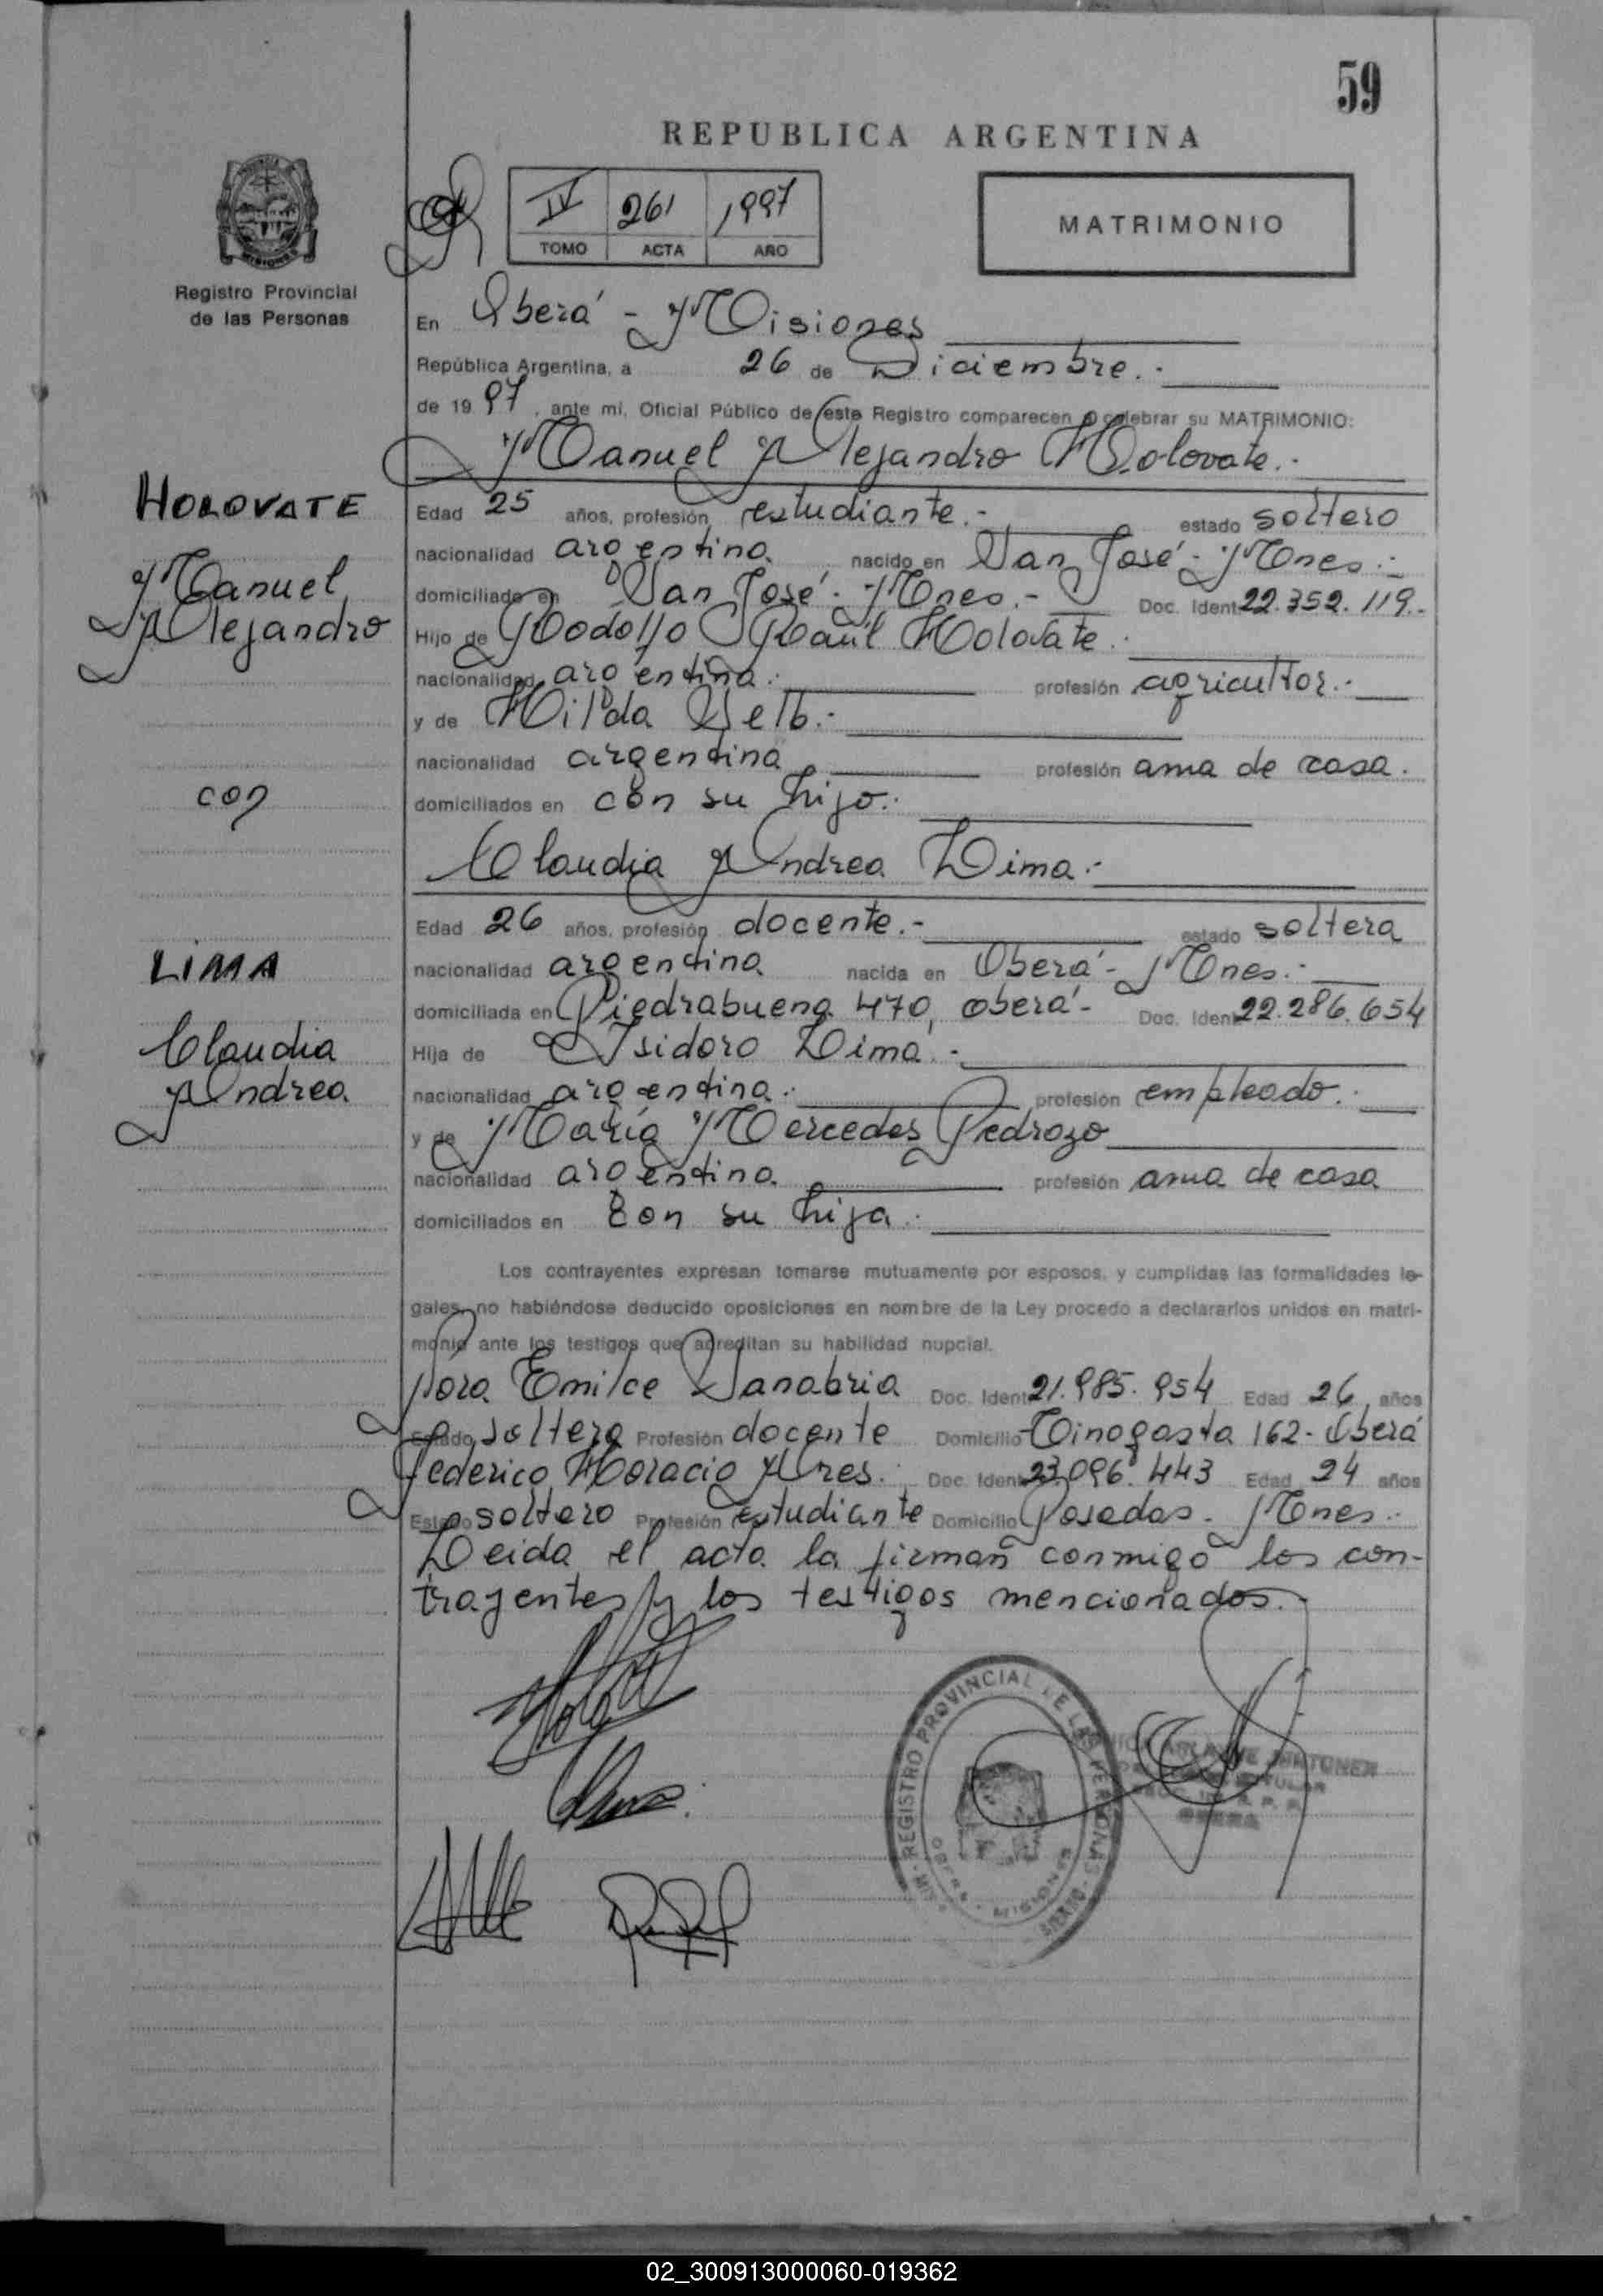 59
REPUBLICA ARGENTINA
IV 261 1997
TOMO ACTA AÑO
MATRIMONIO
Registro Provincial
de las Personas
En Oberá - Misiones
República Argentina, a 26 de Diciembre.-
de 19 97, ante mí, Oficial Público de este Registro comparecen a celebrar su MATRIMONIO:
Manuel Alejandro Holovate.-
HOLOVATE
Manuel
Alejandro
Edad 25 años, profesión estudiante.- estado soltero
nacionalidad argentina nacido en San José - Mnes.-
domiciliado en San José - Mnes.- Doc. Ident. 22.352.119.-
Hijo de Rodolfo Raúl Holovate.
nacionalidad argentina.- profesión agricultor.-
y de Hilda Selb.-
nacionalidad argentina profesión ama de casa.
con
domiciliados en con su hijo.-
Claudia Andrea Lima.-
LIMA
Claudia
Andrea
Edad 26 años, profesión docente.- estado soltera
nacionalidad argentina nacida en Oberá - Mnes.-
domiciliada en Piedrabuena 470, Oberá - Doc. Ident. 22.286.654
Hija de Isidoro Lima.-
nacionalidad argentina.- profesión empleado.-
y de María Mercedes Pedrozo
nacionalidad argentina profesión ama de casa
domiciliados en Con su hija.
Los contrayentes expresan tomarse mutuamente por esposos, y cumplidas las formalidades le-
gales, no habiéndose deducido oposiciones en nombre de la Ley procedo a declararlos unidos en matri-
monio ante los testigos que acreditan su habilidad nupcial.
Nora Emilce Sanabria Doc. Ident. 21.985.954 Edad 26 años
Estado soltera Profesión docente Domicilio Tinogasta 162 - Oberá
Federico Horacio Ares. Doc. Ident. 23.096.443 Edad 24 años
Estado soltero Profesión estudiante Domicilio Posadas - Mnes.-
Leida el acta la firman conmigo los con-
trayentes y los testigos mencionados.-
REGISTRO PROVINCIAL DE LAS PERSONAS
OBERA - MISIONES
02_300913000060-019362